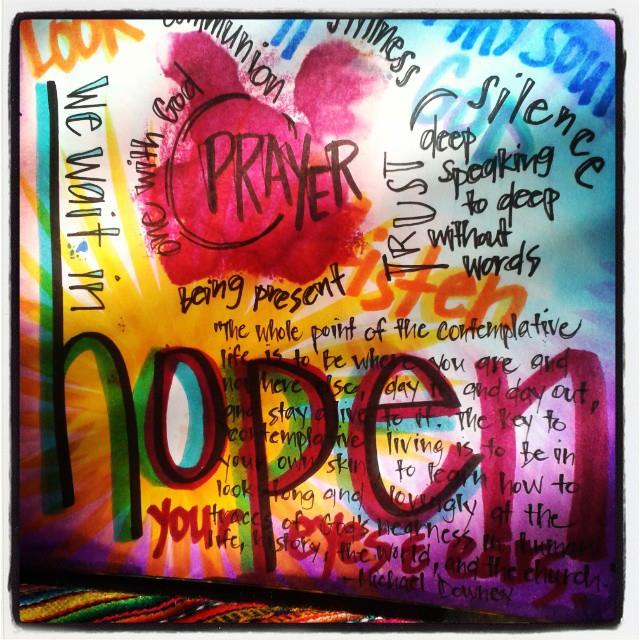 LOOK
communion
stillness
my soul
God
silence
We wait in
one with God
PRAYER
TRUST
deep
speaking
to deep
without
words
being present
listen
hope
"The whole point of the contemplative
life is to be where you are and
nowhere else, day in and day out,
and stay alive to it. The key to
contemplative living is to be in
your own skin, to learn how to
look long and lovingly at the
traces of God's nearness in human
life, history, the world, and the church.
- Michael Downey
you